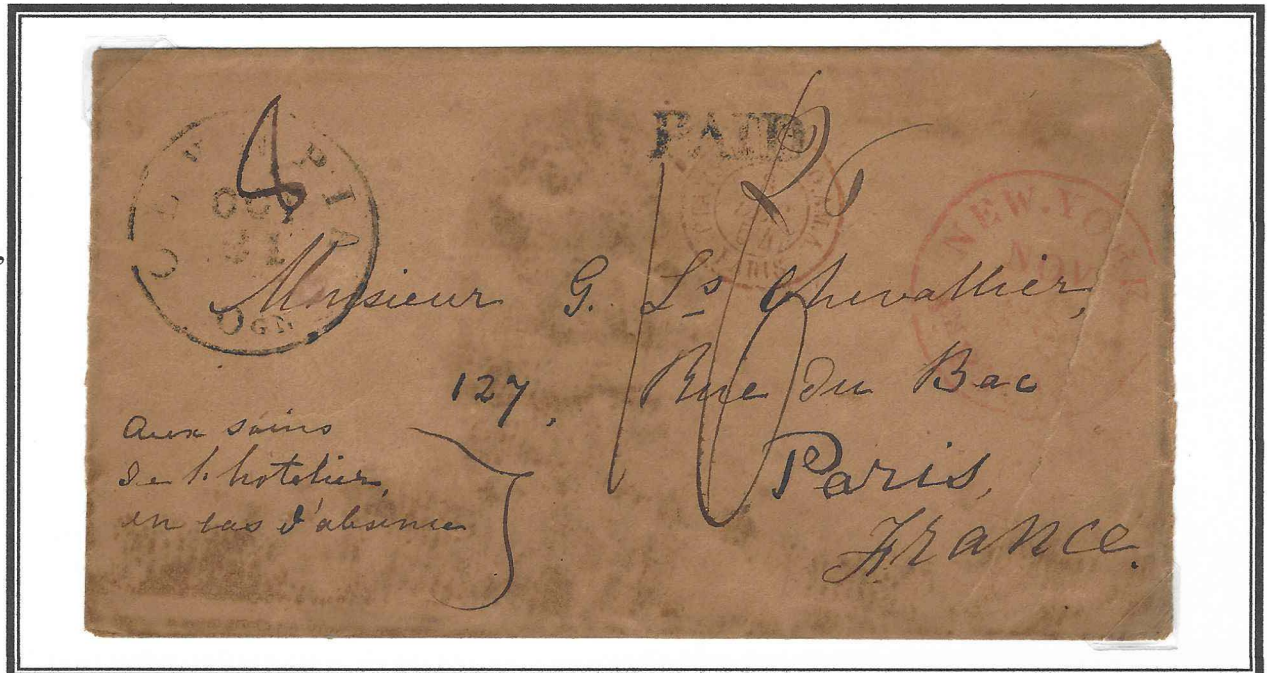 8
OLYMPIA
OCT
21
OGN
PAID
NEW-YORK
NOV
PARIS
10
Monsieur G. Ls Chevallier,
127, Rue du Bac
Paris,
France.
aux soins
de l'hotelier,
en cas d'absence